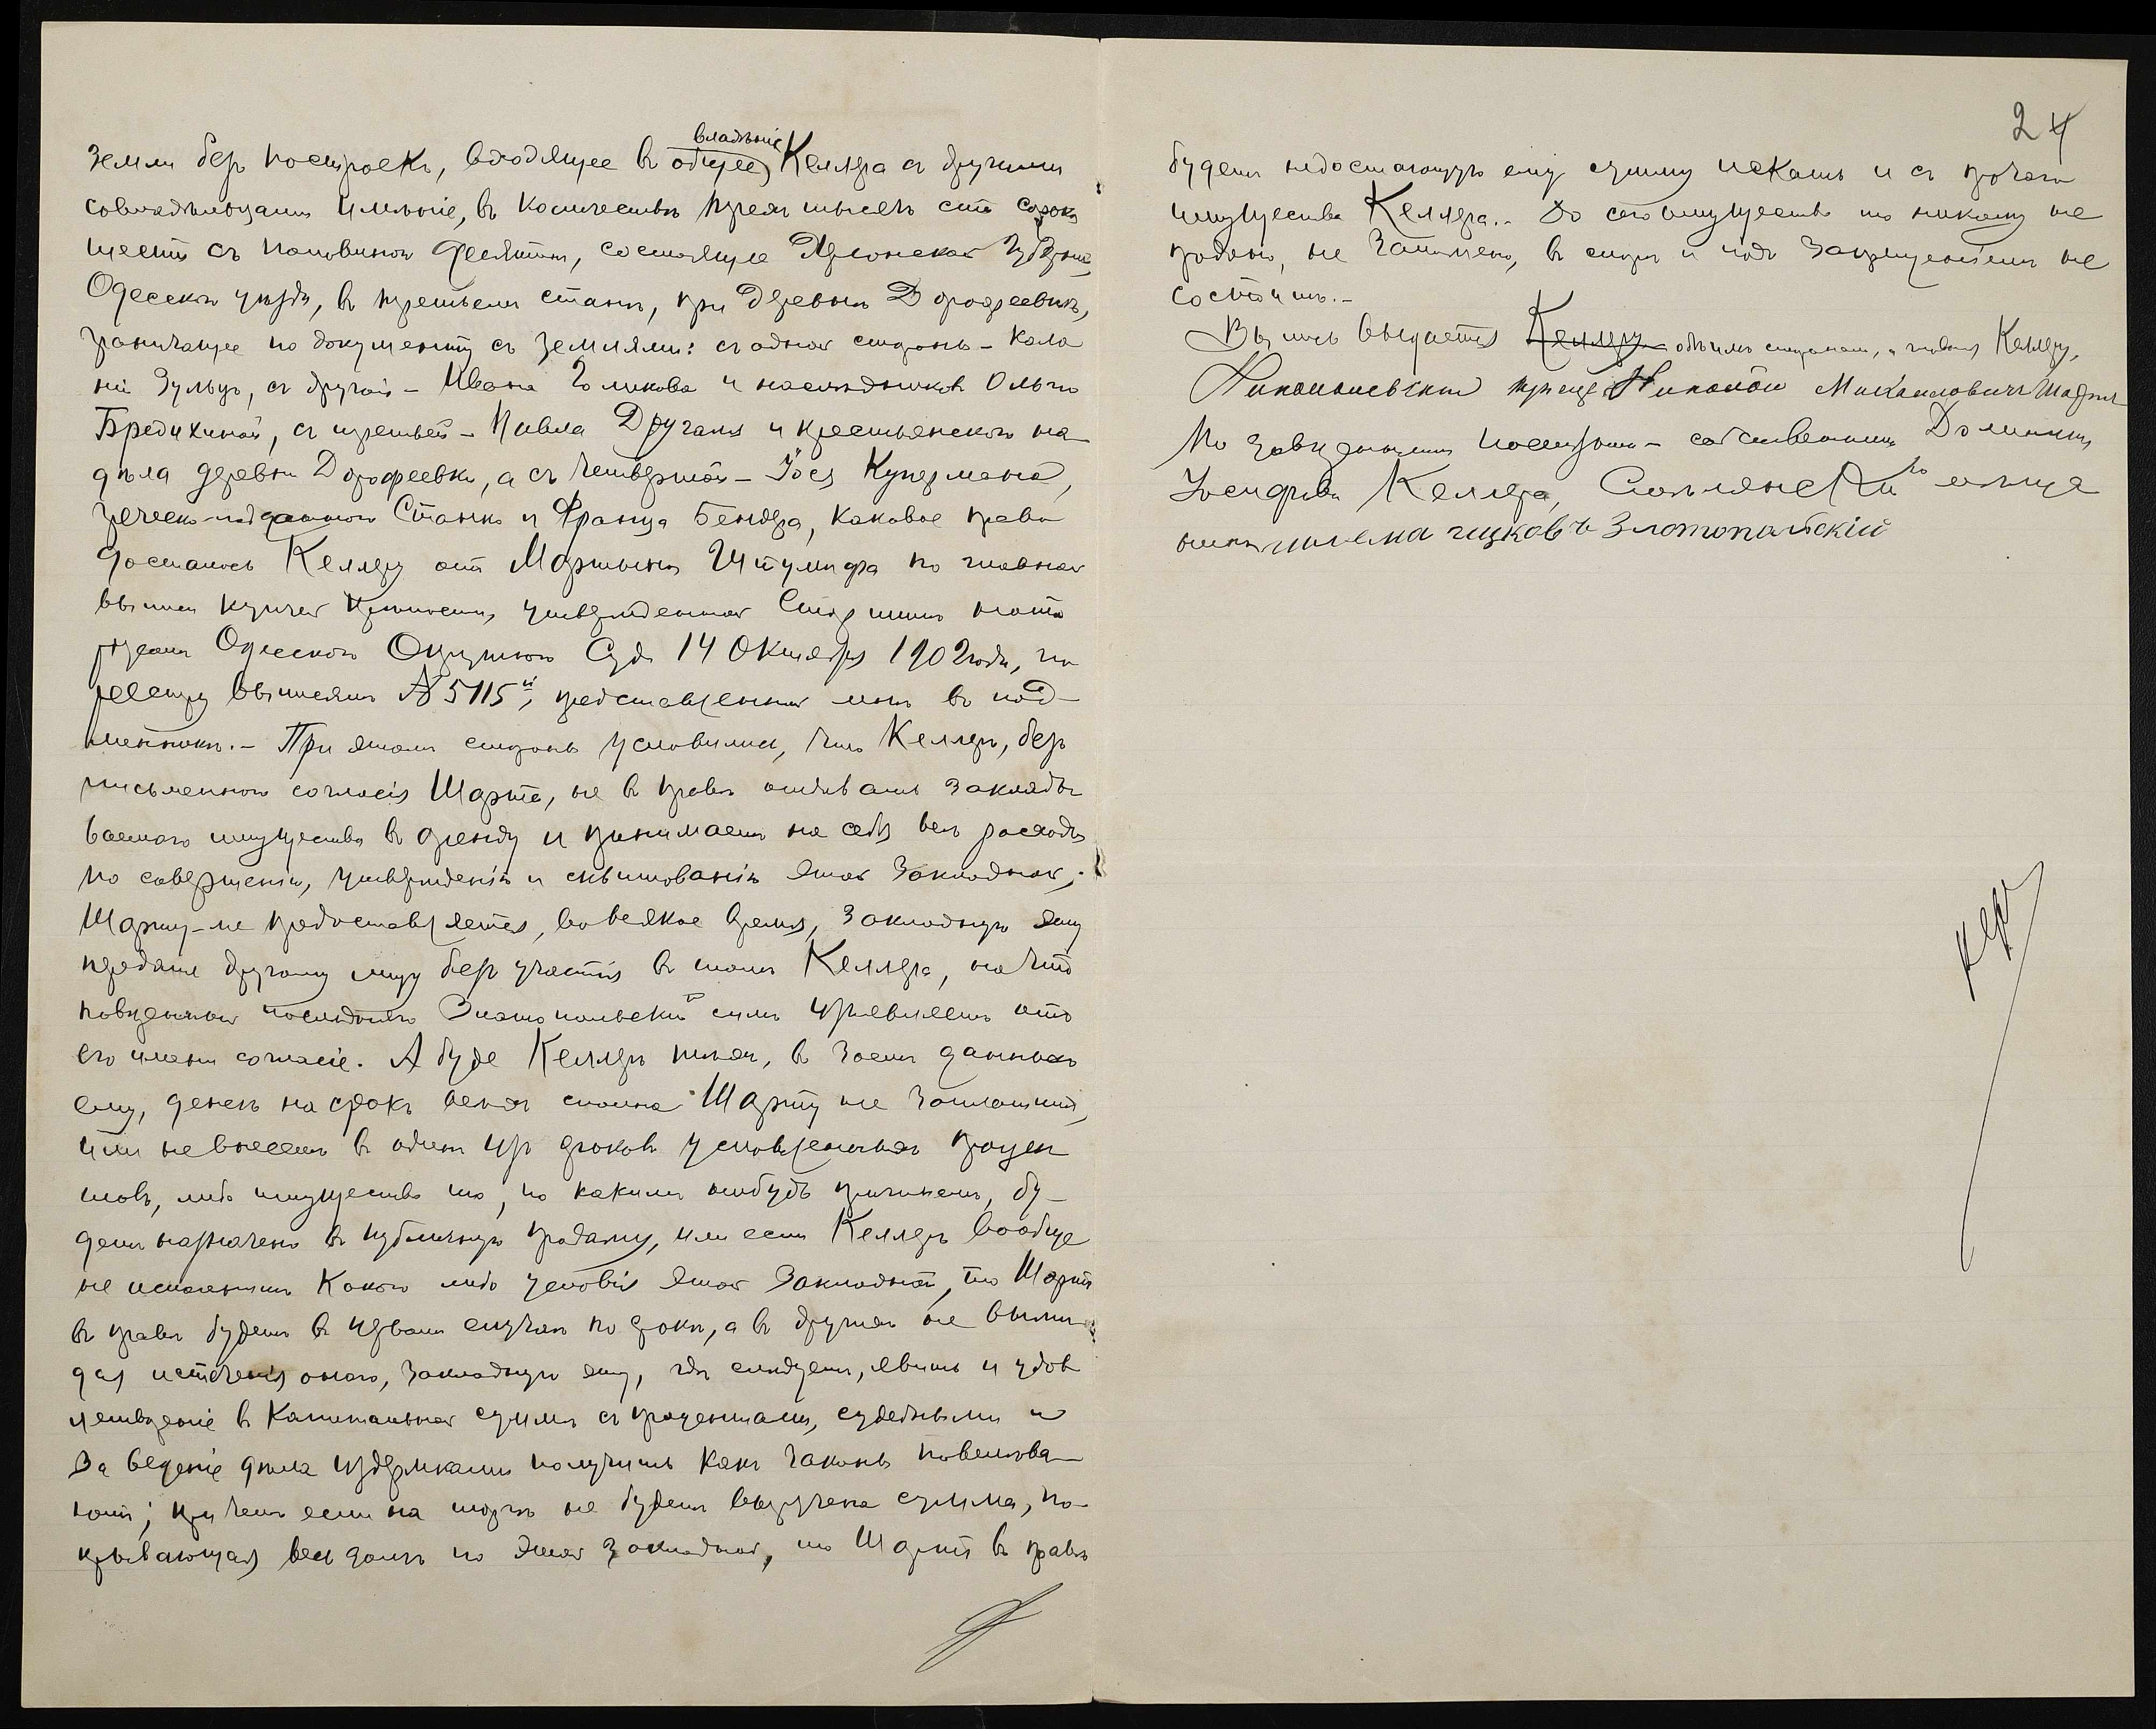 земли безъ построекъ, входящее въ общее владѣніе Келлера съ другими
совладѣльцами имѣніе, въ количествѣ трехъ тысячъ ста сорока
шести съ половиной десятинъ, состоящее Херсонской губерніи,
Одесскаго уѣзда, въ третьемъ станѣ, при деревнѣ Дорофеевкѣ,
граничащее по документу съ землями: съ одной стороны – коло
ніи Зульцъ, съ другой – Ивана Голикова и наслѣдниковъ Ольги
Бредихиной, съ третьей – Павла Другаля и крестьянскаго на-
дѣла деревни Дорофеевки, а съ четвертой – Іося Купермана,
греческо-подданнаго Станко и Франца Бендера, каковое право
досталось Келлеру отъ Мартына Штумпфа по главной
выписи купчей крѣпости, утвержденной Старшимъ нота
ріусомъ Одесскаго Окружнаго Суда 14 Октября 1902 года, по
реестру выписямъ № 5115й, представленной мнѣ въ под-
линникѣ.- При этомъ стороны условились, что Келлеръ, безъ
письменнаго согласія Шарте, не въ правѣ отдавать заклады
ваемаго имущества въ аренду и принимаетъ на себя всѣ расходы
по совершенію, утвержденію и сквитованію этой закладной;
Шарту-же предоставляется, во всякое время, закладную эту
передать другому лицу безъ участія въ томъ Келлера, на что
повѣренный послѣдняго Златопольскій симъ изъявляетъ отъ
его имени согласіе. А буде Келлеръ тѣхъ, въ заемъ данныхъ
ему, денегъ на срокъ всѣхъ сполна Шарту не заплатитъ,
или не внесетъ въ одинъ изъ сроковъ условленныхъ процен
товъ, либо имущество то, по какимъ нибудь причинамъ, бу-
детъ назначено въ публичную продажу, или если Келлеръ вообще
не исполнитъ какого либо условія этой закладной, то Шартъ
въ правѣ будетъ въ первомъ случаѣ по срокѣ, а въ другихъ не выжи
дая истеченія онаго, закладную эту, гдѣ слѣдуетъ, явить и удов
летвореніе въ капитальной суммѣ съ процентами, судебными и
за веденіе дѣла издержками получить какъ законы повелѣва-
ютъ; при чемъ если на торгахъ не будетъ выручена сумма, по-
крывающая весь долгъ по этой закладной, то Шартъ въ правѣ
24
будетъ недостающую ему сумму искать и съ прочаго
имущества Келлера.- До сего имущество то никому не
продано, не заложено, въ спорѣ и подъ запрещеніемъ не
состоитъ.-
Выпись выдается Келлеру обѣимъ сторонамъ, главная Келлеру.
Николаевскій купецъ Николай Михайловичъ Шартъ
По завѣдомымъ – собственника Доминика
Іосифова Келлера,
Златопольскій